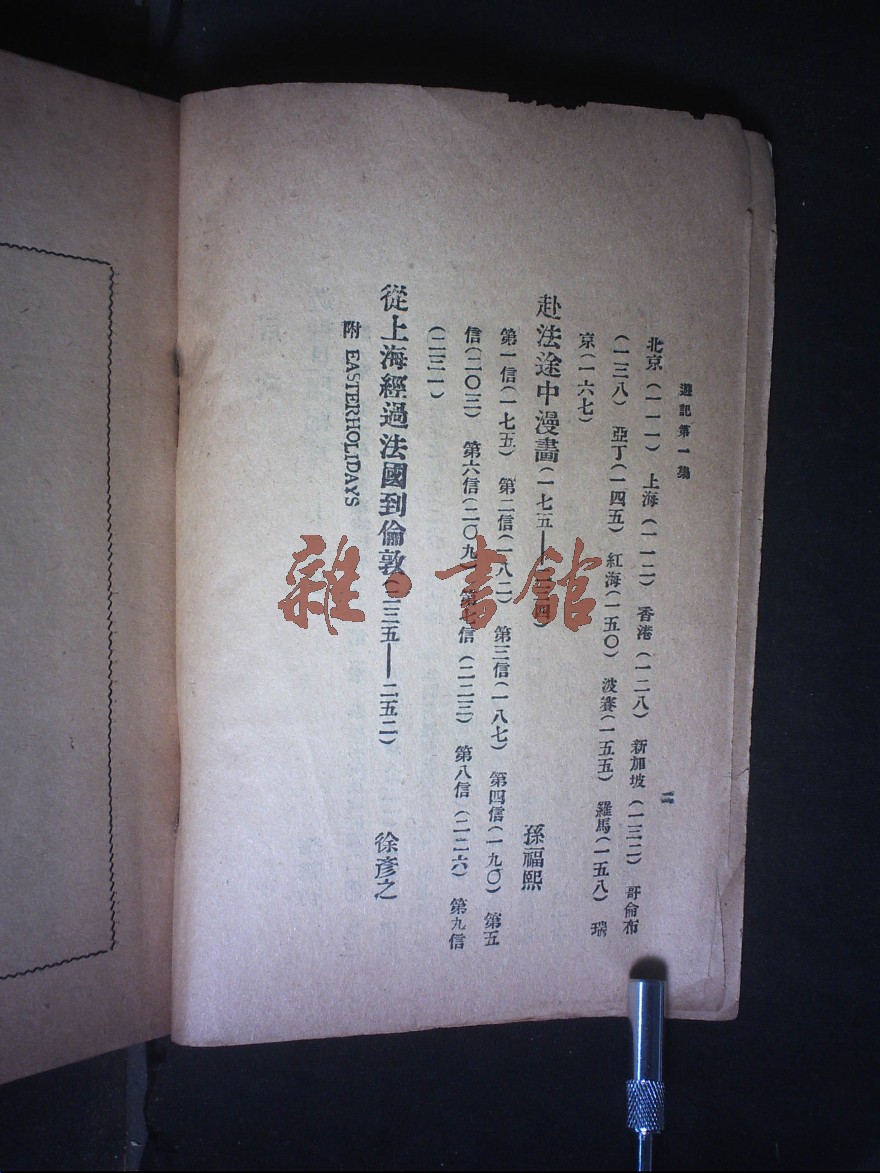 遊記第一集
二
北京(一一一) 上海(一一二) 香港(一二八) 新加坡(一三二) 哥倫布
(一三八) 亞丁(一四五) 紅海(一五〇) 波賽(一五五) 羅馬(一五八) 瑞
京(一六七)
赴法途中漫畵(一七五——二三四) 孫福熙
第一信(一七五) 第二信(一八二) 第三信(一八七) 第四信(一九〇) 第五
信(二〇三) 第六信(二〇九) 第七信(二二三) 第八信(二二六) 第九信
(二三一)
從上海經過法國到倫敦(二三五——二五二) 徐彥之
附 EASTERHOLIDAYS
雜·書館